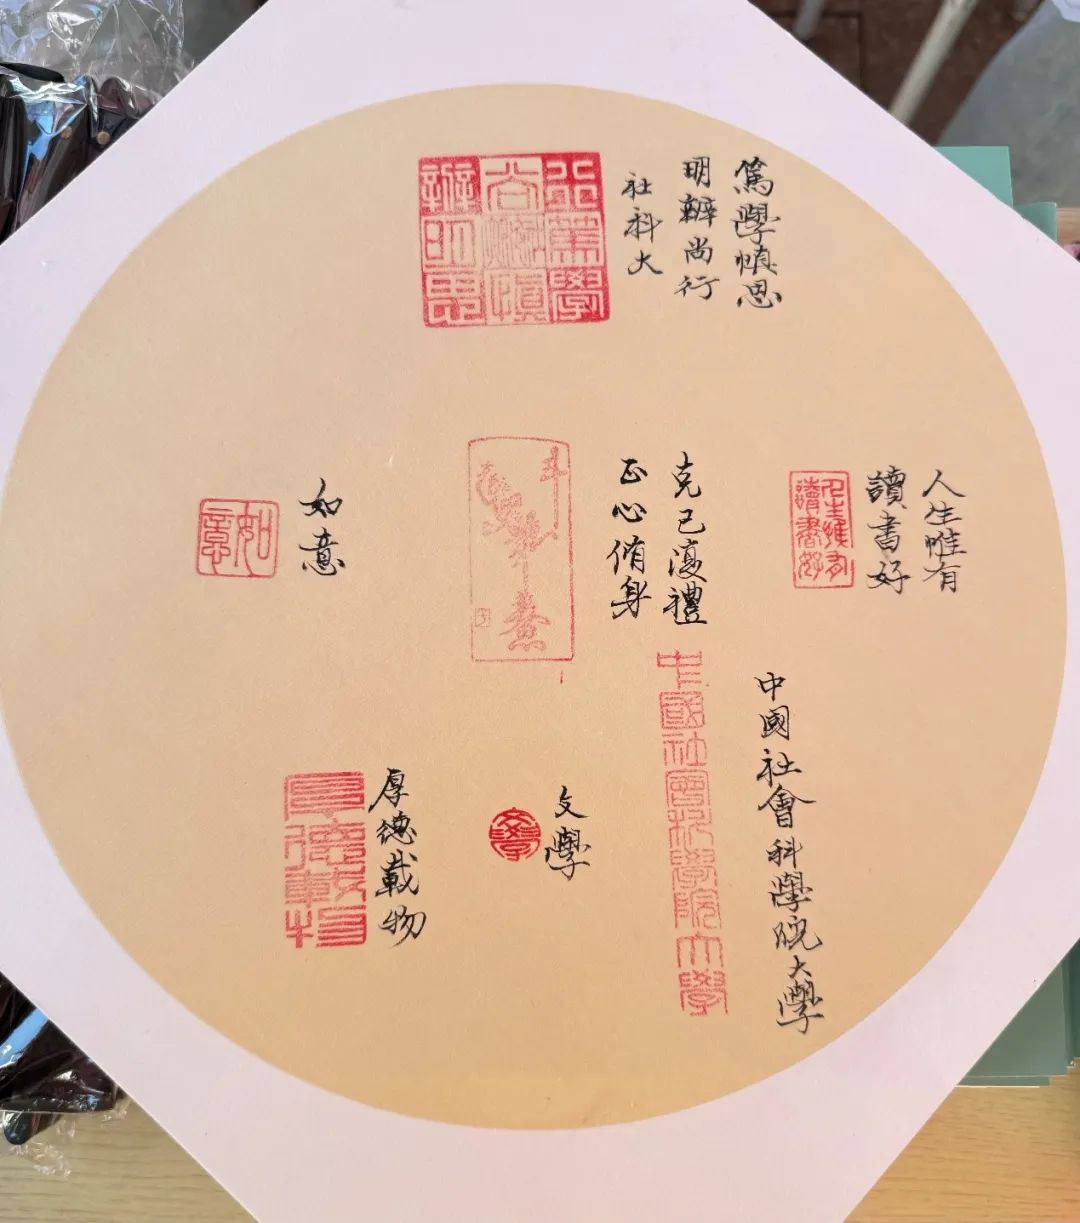 篤學慎思
明辨尚行
社科大
行篤學
尚慎
辨明思
人生惟有
讀書好
人生惟有
讀書好
克己復禮
正心脩身
斗
鰲
如意
如意
中國社會科學院大學
中國社會科學院大學
文學
文學
厚德載物
厚德載物